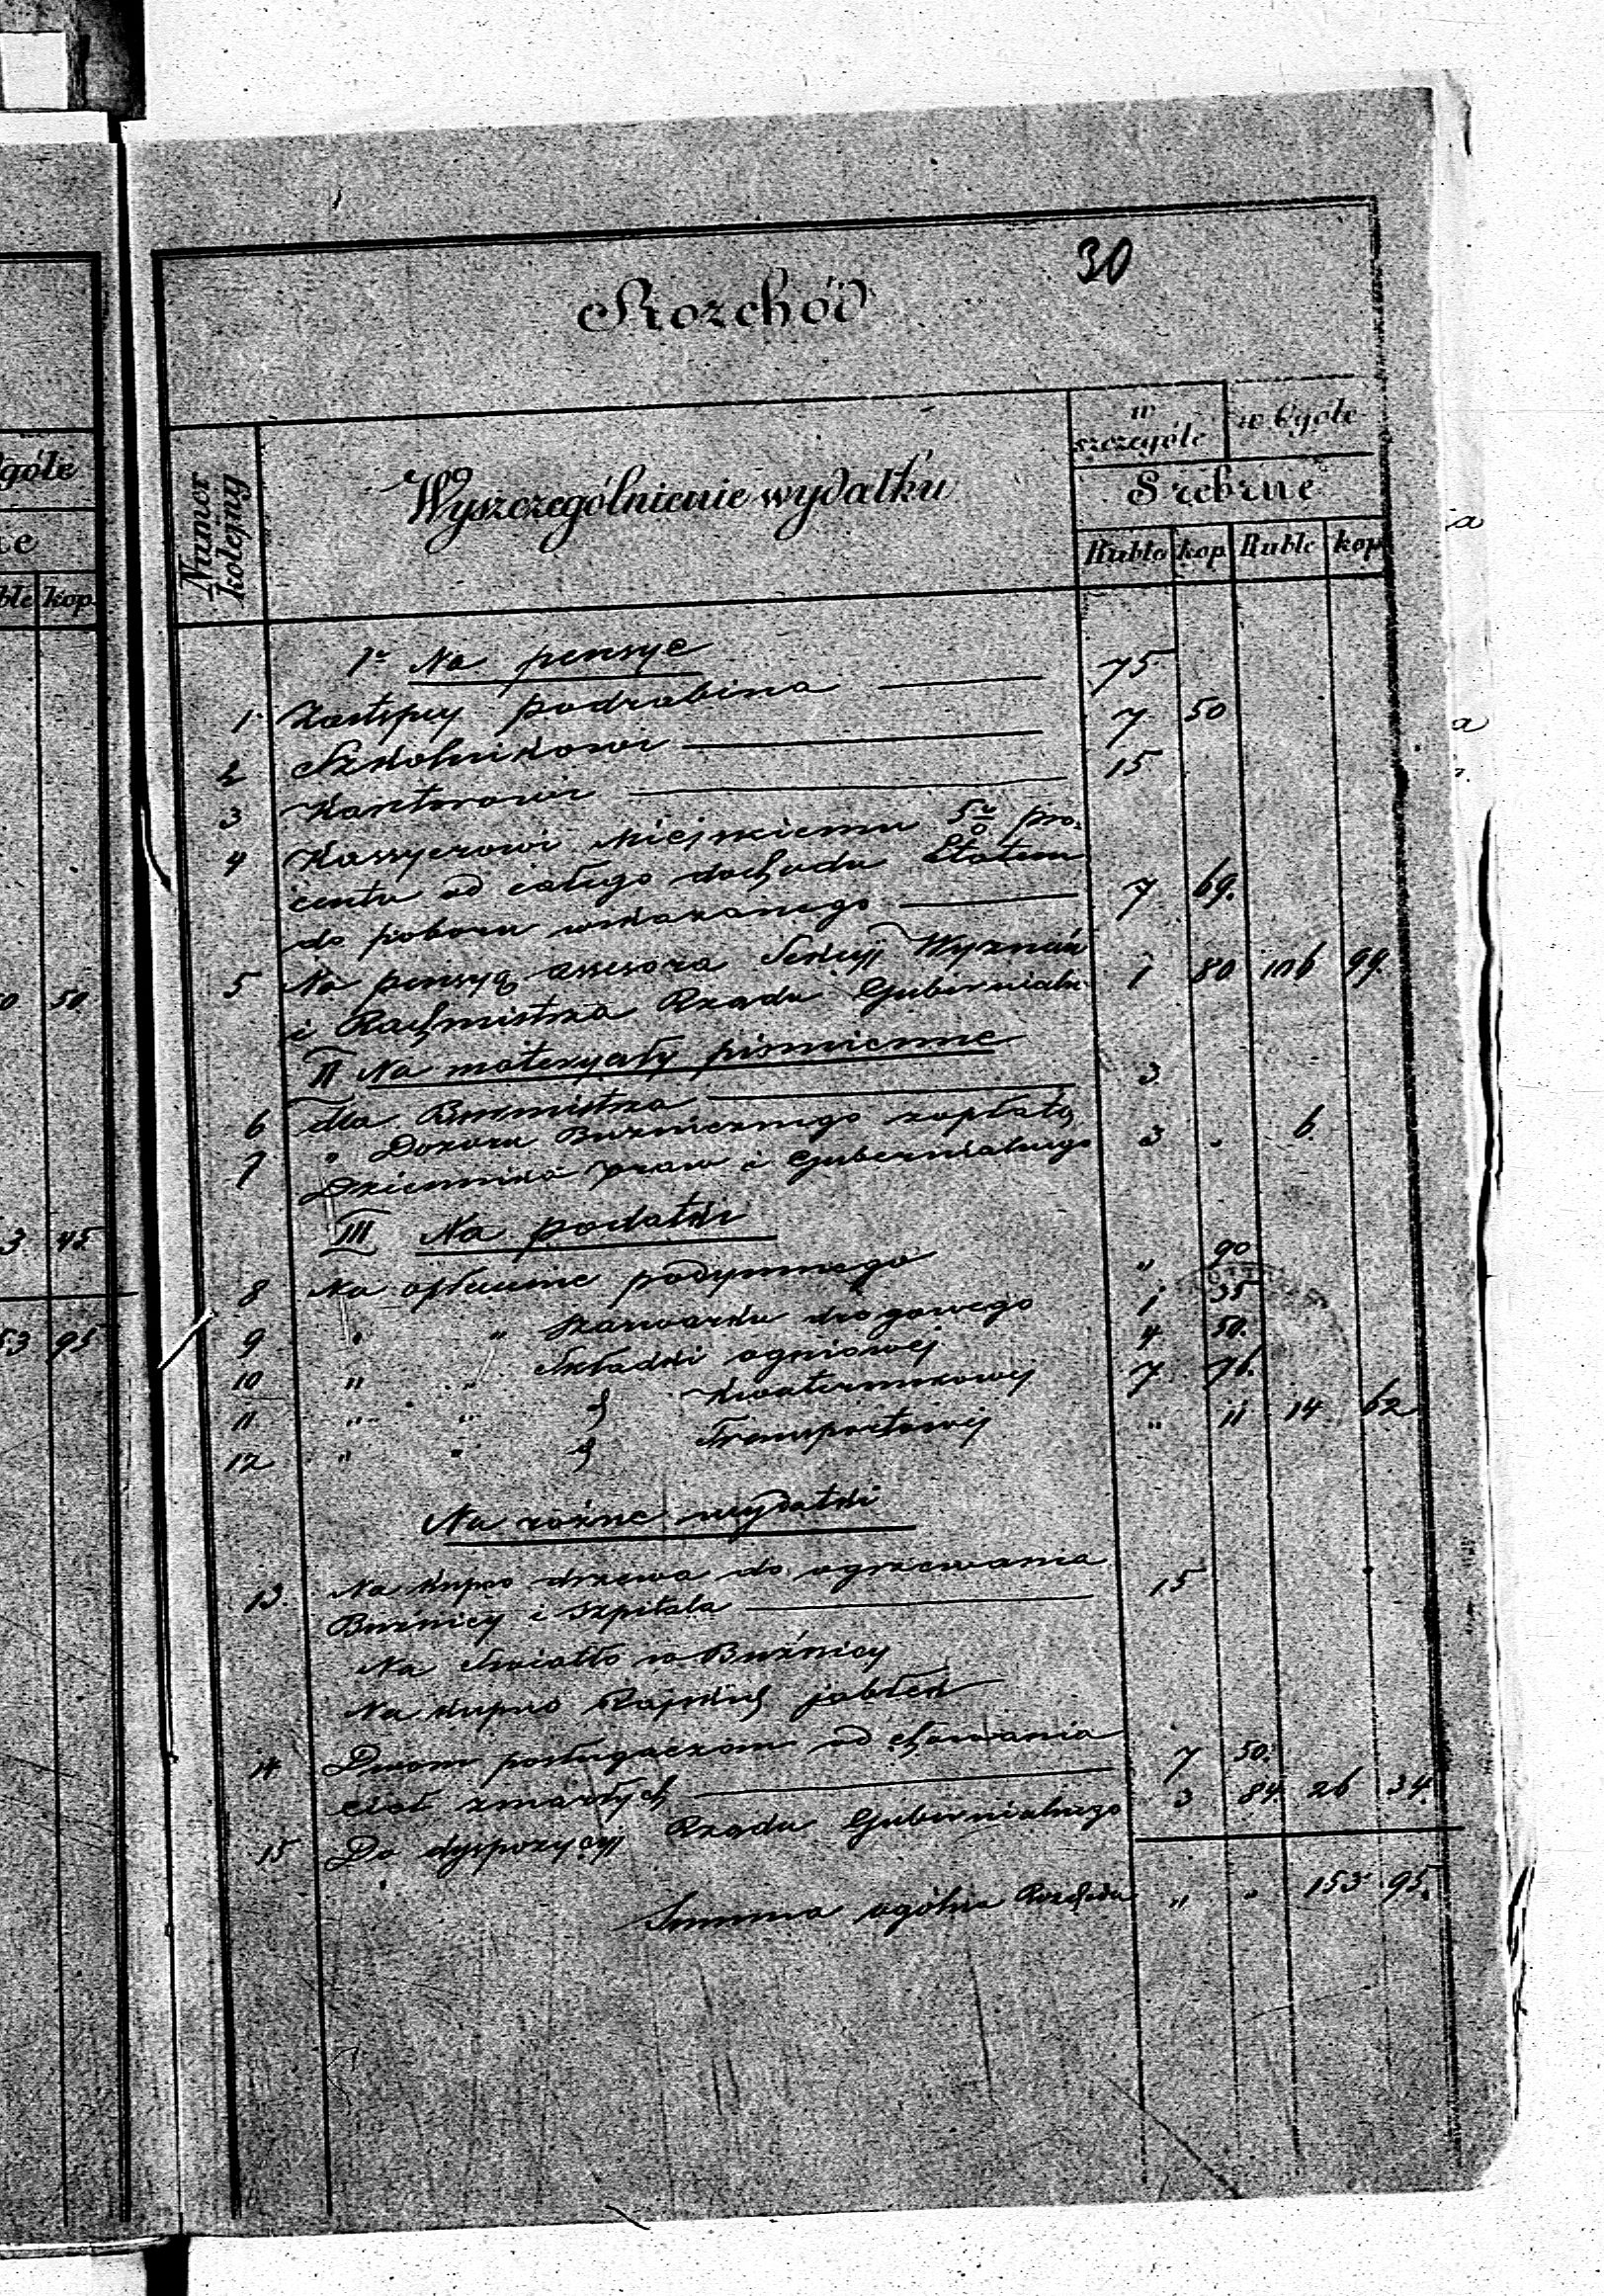 30
Rozchód
Numer kolejny
Wyszczególnienie wydatku
w szczególe
w Ogóle
Srebrne
Ruble kop Ruble kop
1o Na pensye
1 Zastępcy podrabina 75
2 Szkolnikowi 7 50
3 Kantorowi 15
4 Kassyerowi Miejskiemu 5% pro-
centu od całego dochodu Etatem
do poboru wskazanego 7 69.
5 Na pensyą assesora Sekcyi Wyznań
i Rachmistrza Rządu Gubernialn. 1 80 106 99.
II Na materyały piśmienne
6 dla Burmistrza 3
7 " Dozoru Bużniczego zapłatą
Dziennika praw i Gubernialnego 3 . 6.
III Na podatki
8 Na opłacenie podymnego " 90
9 " " Szarwarku drogowego 1 35
10 " " Składki ogniowej 4 50.
11 " " Kwaterunkowej 7 76.
12 " " Transportowej " 11 14 62
Na różne wydatki
13. Na kupno drzewa do ogrzewania
Bużnicy i szpitala 15
Na światło w Bużnicy
Na kupno Rajskich jabłek
14 Dwom posługaczom od chowania
ciał zmarłych 7 50.
15 Do dyspozycyi Rządu Gubernialnego 3 84. 26 34.
Summa ogólna Rozchodu " " 153 95.
góle
ble kop.
50
3 45
53 95